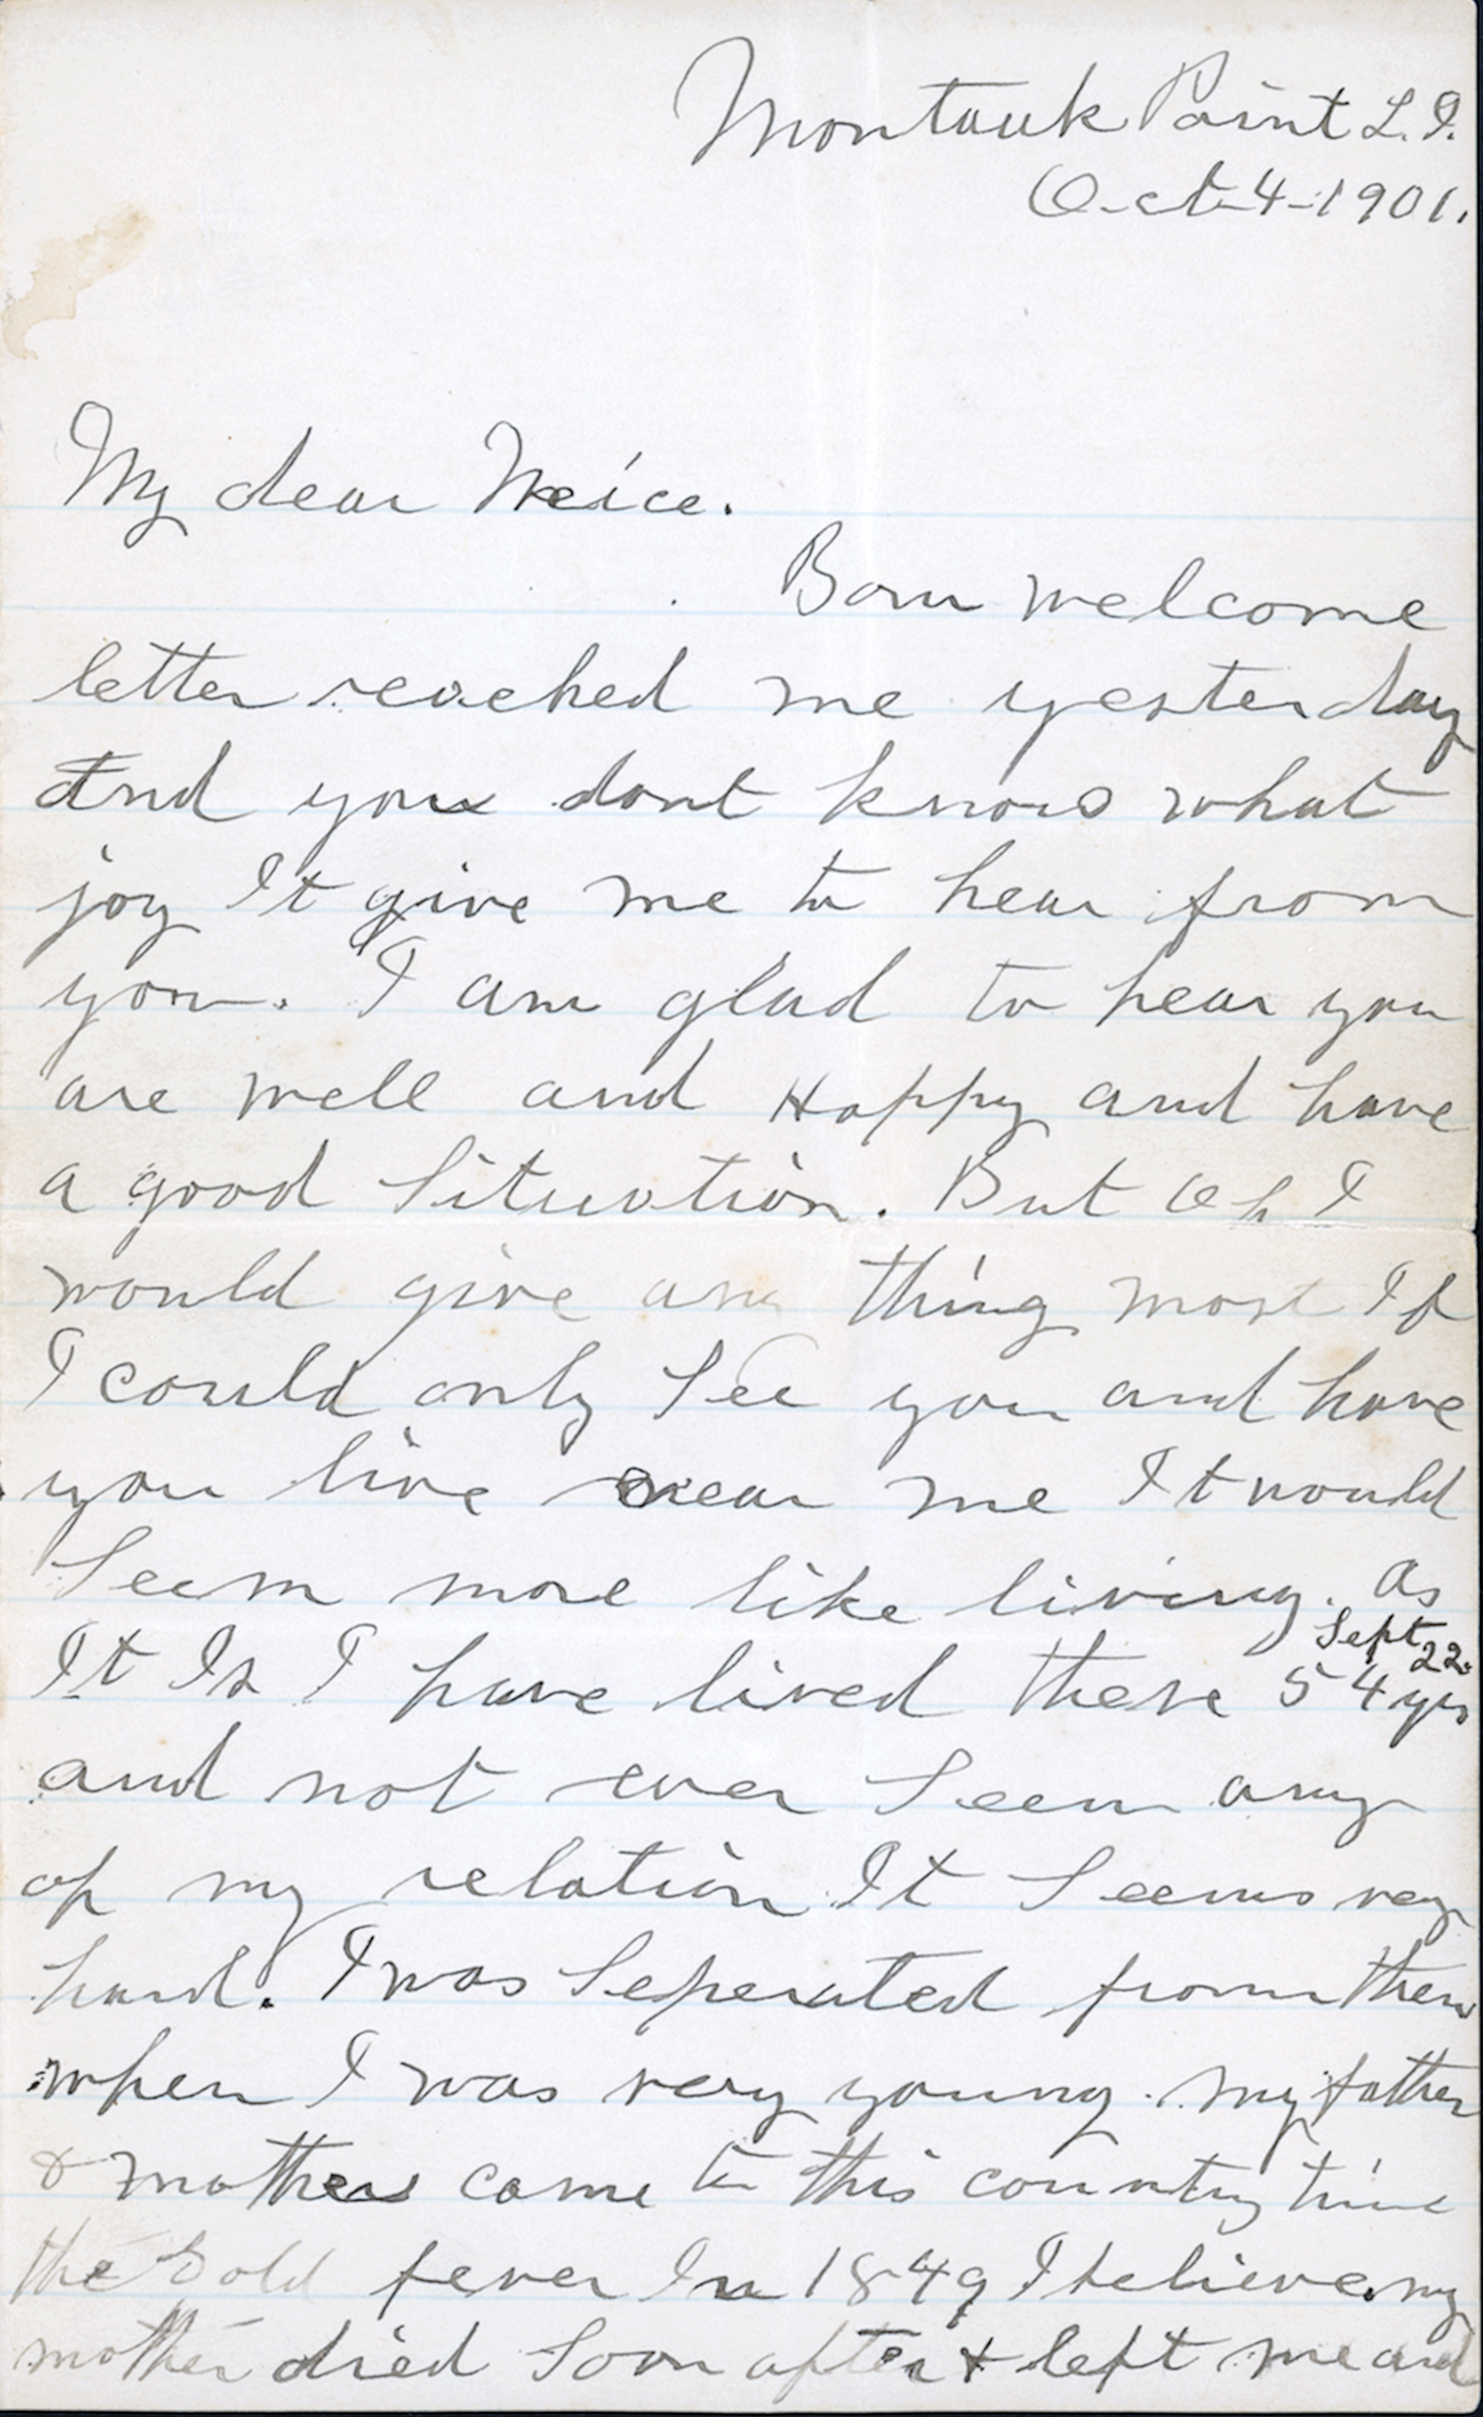 Montauk Point L.I.
Oct-4-1901.
My dear Neice.
Your welcome
letter reached me yesterday
And you dont know what
joy It give me to hear from
you. I am glad to hear you
are well and Happy and have
a good Situation. But Oh I
would give any thing most If
I could only See you and have
you live near me It would
Seem more like living. As
Sept 22.
It Is I have lived these 54 yrs
and not ever Seen any
of my relation It Seems very
hard. I was Seperated from them
when I was very young. My father
& mother came to this country time
the Gold fever In 1849 I believe. my
mother died Soon after & left me and